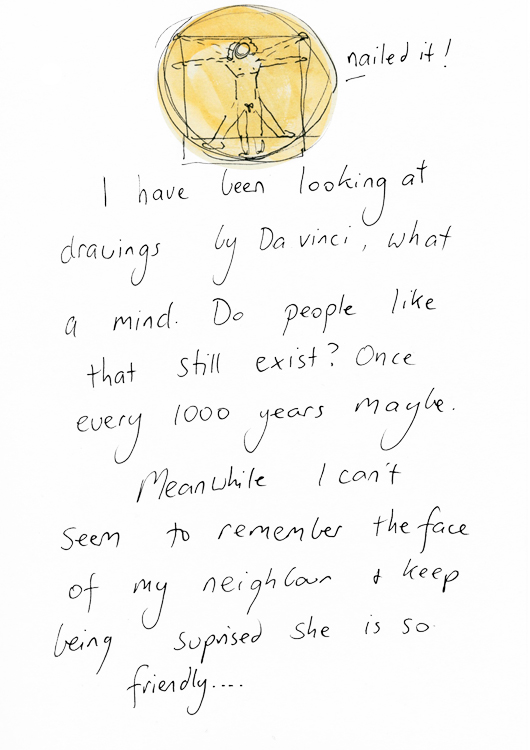 nailed it!
I have been looking at
drawings by Da vinci, what
a mind. Do people like
that still exist? Once
every 1000 years maybe.
Meanwhile I can't
seem to remember the face
of my neighbour & keep
being suprised she is so
friendly....